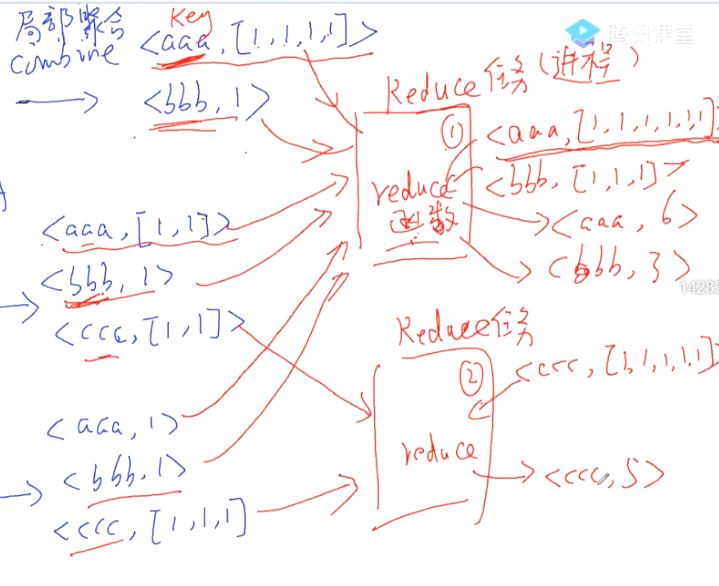 局部聚合
combine
Key
<aaa,[1,1,1,1]>
<bbb,1>
<aaa,[1,1]>
<bbb,1>
<ccc,[1,1]>
<aaa,1>
<bbb,1>
<ccc,[1,1,1]>
腾讯课堂
Reduce任务(进程)
①
reduce
函数
<aaa,[1,1,1,1,1,1]
<bbb,[1,1,1]>
<aaa,6>
<bbb,3>
1428
Reduce任务
②
reduce
<ccc,[1,1,1,1,1]
<ccc,5>